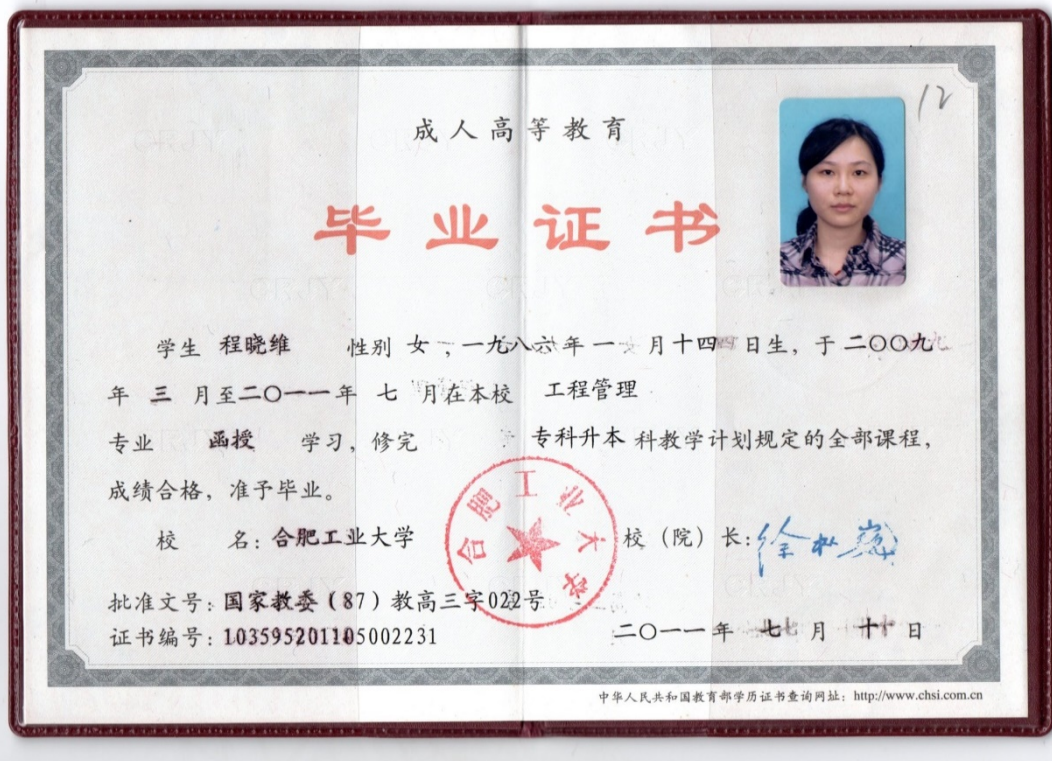 12
成人高等教育
毕业证书
学生 程晓维 性别 女，一九八六年 一 月十四日生，于二〇〇九
年 三 月至二〇一一年 七 月在本校 工程管理
专业 函授 学习，修完 专科升本 科教学计划规定的全部课程，
成绩合格，准予毕业。
校 名：合肥工业大学 校（院）长：徐枞巍
合肥工业大学
批准文号：国家教委（87）教高三字022号
证书编号：103595201105002231
二〇一一年 七 月 十 日
中华人民共和国教育部学历证书查询网址：http://www.chsi.com.cn